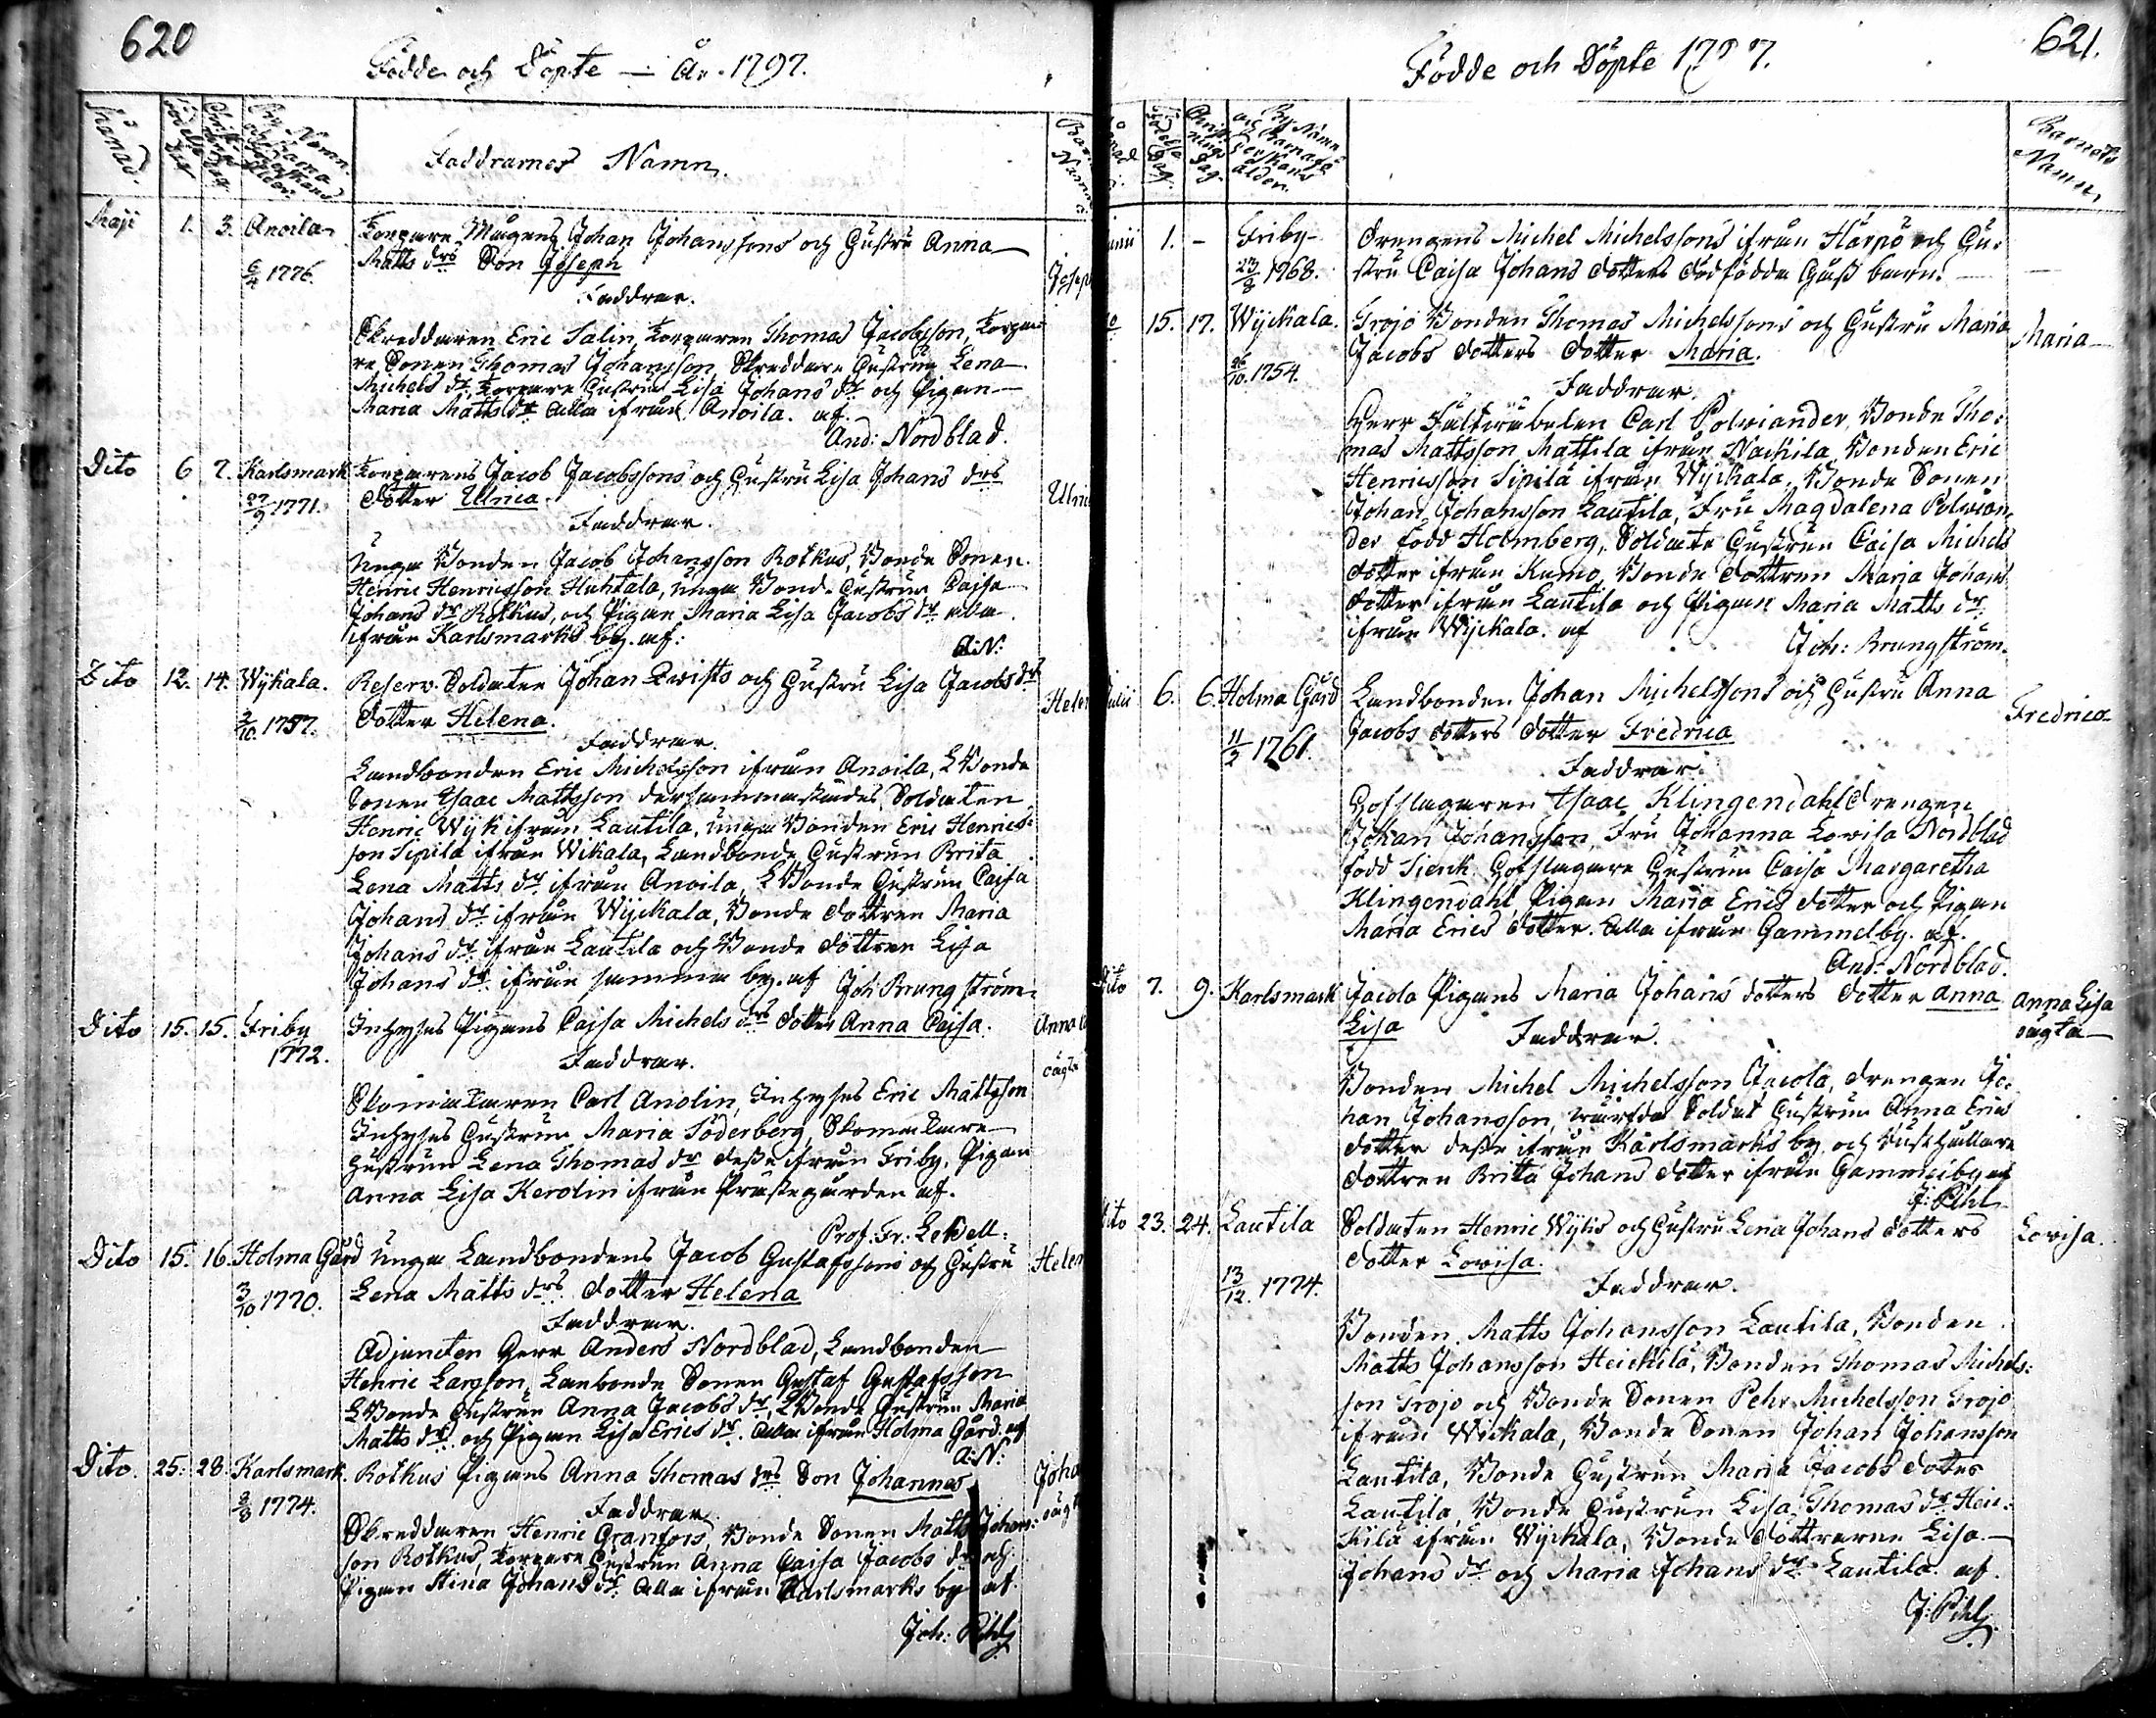 620
Födde och Döpte — År. 1797.
Månad.
Födelse Dag
Christnings Dag.
By Namn och Barnaföderskans ålder.
Faddrarnes Namn.
Barnets Namn
Maji 1. 3. Anoila Torpare Mågens Johan Johanssons och Hustru Anna
6/4 1776. Matts drs Son Joseph Joseph
Faddrar.
Skreddaren Eric Salin, Torparen Thomas Jacobsson, Torpa-
re Sonen Thomas Johansson, Skreddare Hustrun Lena
Michels dr, Torpare Hustrun Lisa Johans dr och Pigan
Maria Matts dr Alla ifrån Anoila. af
And: Nordblad.
Dito 6 7. Karlsmark Torparens Jacob Jacobssons och Hustru Lisa Johans drs
27/9 1771. Dotter Ulrica. Ulric
Faddrar.
Unga Bonden Jacob Johansson Rotkus, Bonde Sonen
Henric Henricsson Huhtala, unga Bonde Hustrun Caisa
Johans dr Rotkus, och Pigan Maria Lisa Jacobs dr alla
ifrån Karlsmarks by. af:
A:N:
Dito 12. 14. Wykala. Reserv. Soldaten Johan Qvists och Hustru Lisa Jacobs drs
2/10. 1757. Dotter Helena. Helen
Faddrar.
Landbonden Eric Michelsson ifrån Anoila, LBonde
Sonen Isaac Mattsson dersammastädes, Soldaten
Henric Wijk ifrån Lautila, unga Bonden Eric Henrics-
son Sipilä ifrån Wikala, Landbonde Hustrun Brita
Lena Matts dr ifrån Anoila, LBonde Hustrun Caisa
Johans dr ifrån Wijckala, Bonde Dottren Maria
Johans dr ifrån Lautila och Bonde Dottren Lisa
Johans dr ifrån samma by. af Joh: Brungström.
Dito 15. 15. Friby Inhyses Pigans Caisa Michels drs Dotter Anna Caisa. Anna C
1772. oägta
Faddrar.
Skomakaren Carl Anolin, Inhyses Eric Mattsson
Inhyses Hustrun Maria Söderberg, Skomakare
Hustrun Lena Thomas dr desse ifrån Friby, Pigan
Anna Lisa Kerolin ifrån Prästegården af.
Prof. Fr: Lebell:
Dito 15. 16. Holma Gård Unga Landbondens Jacob Gustafssons och Hustru Helen
3/10 1770. Lena Matts drs. Dotter Helena
Faddrar.
Adjuncten Herr Anders Nordblad, Landbonden
Henric Larsson, Lanbonde Sonen Gustaf Gustafsson
LBonde Hustrun Anna Jacobs dr, LBonde Hustrun Maria
Matts dr. och Pigan Lisa Erics dr. Alla ifrån Holma Gård. af
A:N:
Dito. 25. 28. Karlsmark. Rotkus Pigans Anna Thomas drs Son Johannes Joha
1774. Faddrar. oägt
Skreddaren Henric Granfors, Bonde Sonen Matts Johans-
son Rotkus, Torpare Hustrun Anna Caisa Jacobs dr och
Pigan Stina Johans dr. Alla ifrån Karlsmarks by af.
Joh: Pihl
621.
Födde och Döpte 1797.
Födelse Dag.
Christnings Dag.
By Namn och Barnaföderskans ålder.
Barnets Namn
Junii 1. - Friby Drengens Michel Michelssons ifrån Harpö och Hu-
23/8 1768. stru Caisa Johans Dotters Dödfödde Goss barn. —
15. 17. Wyckala. Trojo Bonden Thomas Michelssons och Hustru Maria Maria
/10. 1754. Jacobs Dotters Dotter Maria.
Faddrar.
Herr Fältwäbelen Carl Polviander, Bonde Tho-
mas Mattsson Mattila ifrån Nackila, Bonden Eric
Henricsson Sipilä ifrån Wijckala, Bonde Sonen
Johan Johansson Lautila, Fru Magdalena Polvian-
der född Holmberg, Soldate Hustrun Caisa Michels
Dotter ifrån Kumo, Bonde Dottren Maria Johans
Dotter ifrån Lautila och Pigan Maria Matts dr.
ifrån Wijckala. af
Joh: Brungström.
Julii 6. 6. Holma Gård Landbonden Johan Michelssons och Hustru Anna Fredrica
11/2 1761. Jacobs Dotters Dotter Fredrica
Faddrar.
Hofslagaren Isaac Klingendahl Drengen
Johan Johansson, Fru Johanna Lovisa Nordblad
född Sierck, Hofslagare Hustrun Caisa Margaretha
Klingendahl Pigan Maria Erics Dotter och Pigan
Maria Erics Dotter. Alla ifrån Gammelby. af.
And: Nordblad.
Dito 7. 9. Karlsmark Jacola Pigans Maria Johans Dotters Dotter Anna Anna Lisa
Lisa oägta
Faddrar.
Bonden Michel Michelsson Jacola, Drengen Jo-
han Johansson, Soldat Hustrun Anna Erics
Dotter desse ifrån Karlsmarks by och Rusthållare
Dottren Brita Johans Dotter ifrån Gammelby af
J: Pihl
Dito 23. 24. Lautila Soldaten Henric Wijks och Hustru Lena Johans Dotters Lovisa.
13/12. 1774. Dotter Lovisa.
Faddrar.
Bonden Matts Johansson Lautila, Bonden
Matts Johansson Heickilä, Bonden Thomas Michels-
son Trojo och Bonde Sonen Pehr Michelsson Trojo
ifrån Wickala, Bonde Sonen Johan Johansson
Lautila, Bonde Hustrun Maria Jacobs Dotter
Lautila, Bonde Hustrun Lisa Thomas dr Heic-
kilä ifrån Wijckala, Bonde Döttrarne Lisa
Johans dr och Maria Johans dr Lautila. af.
J: Pihl